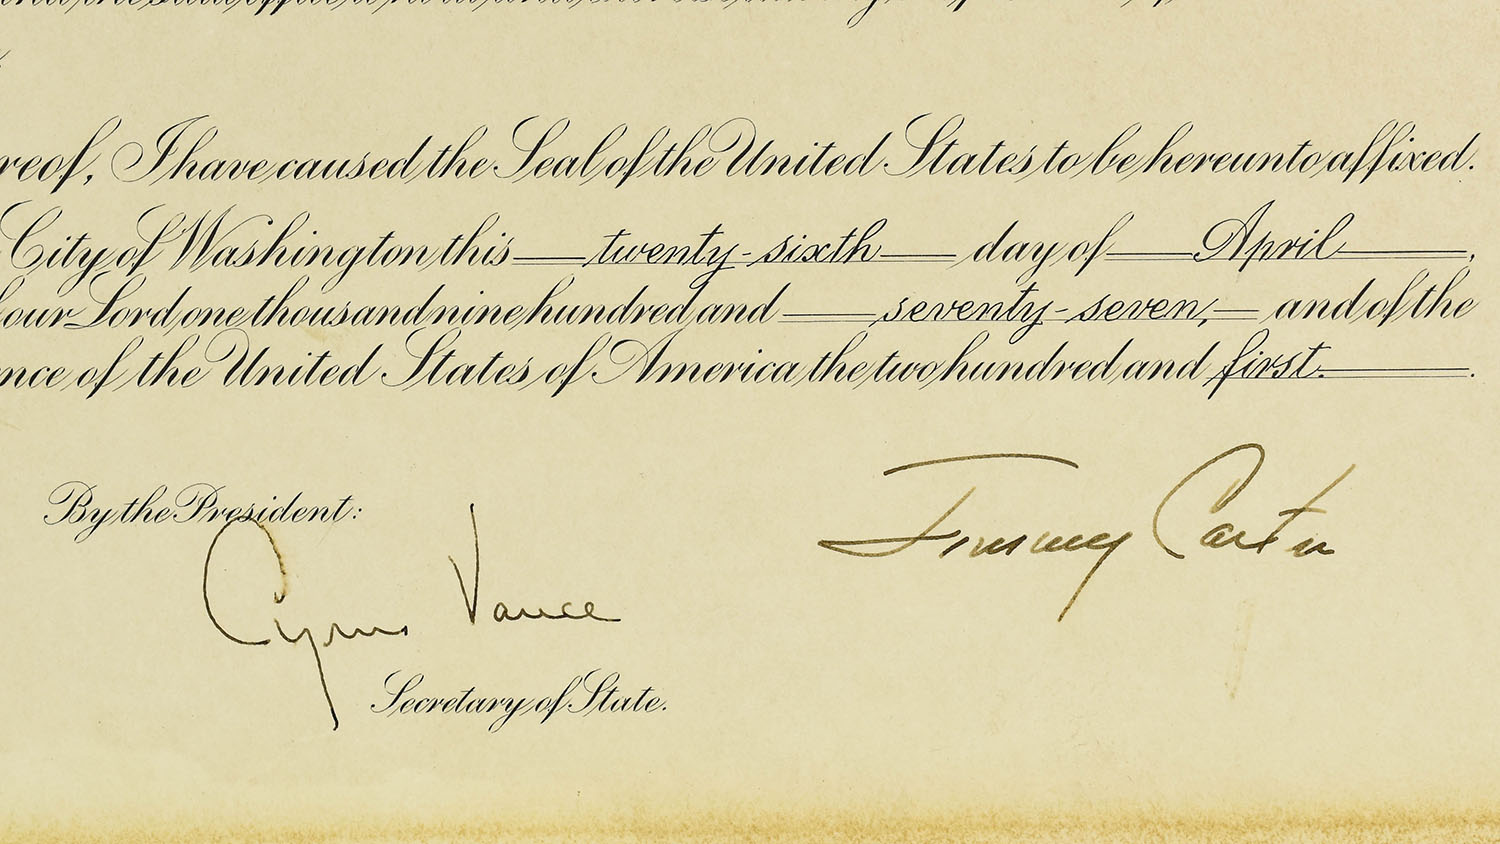 reof, I have caused the Seal of the United States to be hereunto affixed.
City of Washington this twenty-sixth day of April,
our Lord one thousand nine hundred and seventy-seven, and of the
nce of the United States of America the two hundred and first.
By the President:
Jimmy Carter
Cyrus Vance
Secretary of State.